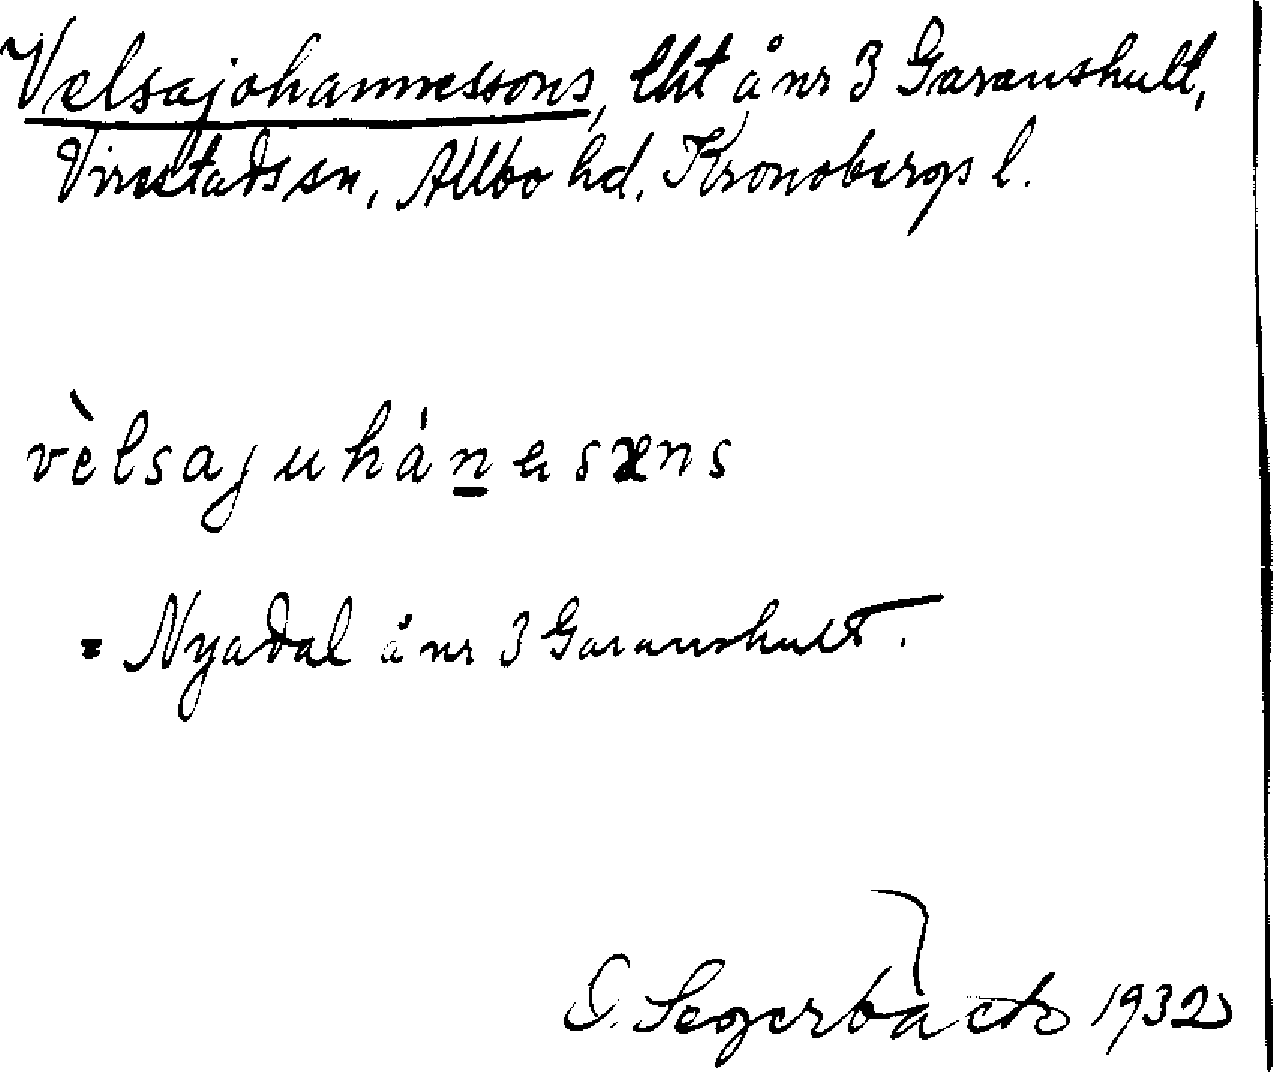 Velsajohannessons, lht å nr 3 Garanshult,
Virestads sn, Allbo hd, Kronobergs l.
vèlsajuhánesəns
= Nyadal å nr 3 Garanshult.
Segerbäck 1932